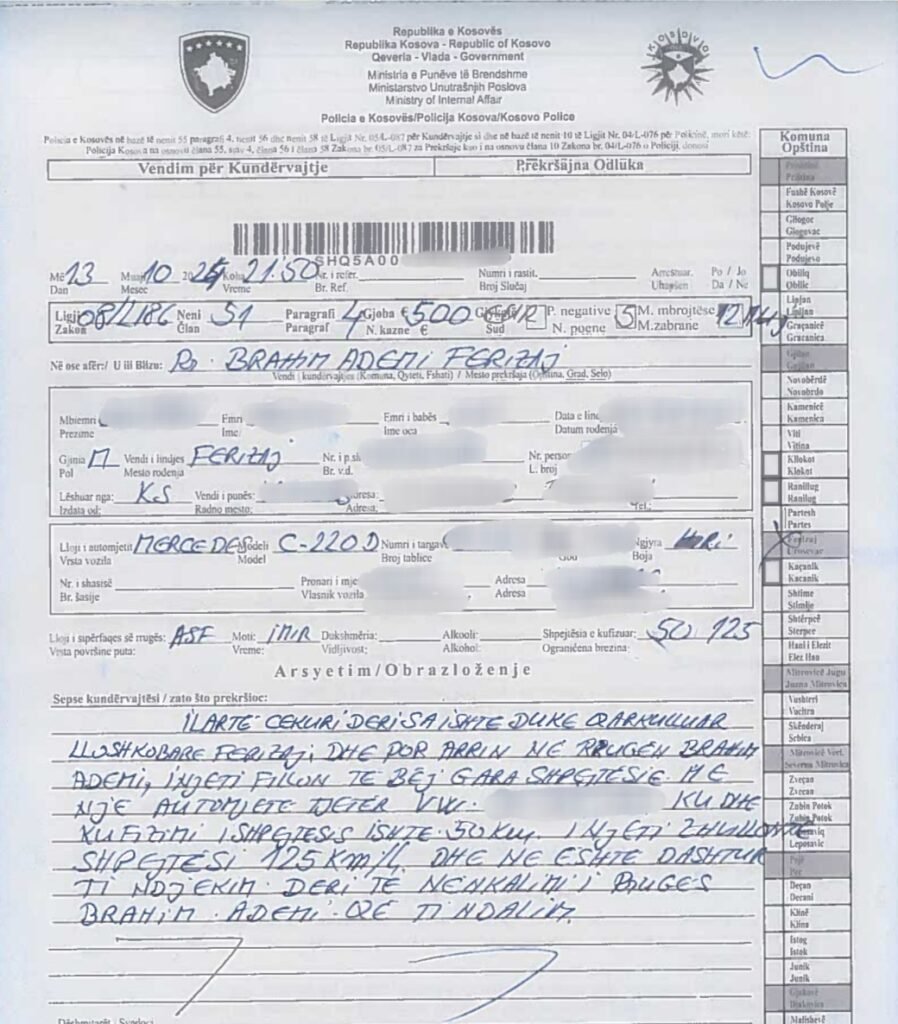 Republika e Kosovës
Republika Kosova - Republic of Kosovo
Qeveria - Vlada - Government
Ministria e Punëve të Brendshme
Ministarstvo Unutrašnjih Poslova
Ministry of Internal Affair
Policia e Kosovës/Policija Kosova/Kosovo Police
KOSOVO
Policia e Kosovës në bazë të nenit 55 paragrafi 4, nenit 56 dhe nenit 58 të Ligjit Nr. 05/L-087 për Kundërvajtje si dhe në bazë të nenit 10 të Ligjit Nr. 04/L-076 për Policinë, mori këtë:
Policija Kosova na osnovu člana 55, stav 4, člana 56 i člana 58 Zakona br. 05/L-087 za Prekršaje kao i na osnovu člana 10 Zakona br. 04/L-076 o Policiji, donosi
Vendim për Kundërvajtje Prekršajna Odluka
SHQ5A00
Më 13 Muaj 10 2025 Koha 21:50 Nr. i refer. Numri i rastit. Arrestuar. Po / Jo
Dan Mesec Vreme Br. Ref. Broj Slučaj Uhapšen Da / Ne
Ligji 08/L186 Neni 51 Paragrafi 4 Gjoba € 500 P. negative 5 M. mbrojtëse 12
Zakon Član Paragraf N. kazne € Sud N. poene M.zabrane
Në ose afër:/ U ili Blizu: Rr. BRAHIM ADEMI FERIZAJ
Vendi i kundërvajtjes (Komuna, Qyteti, Fshati) / Mesto prekršaja (Opština, Grad, Selo)
Mbiemri Emri Emri i babës Data e
Prezime Ime Ime oca Datum rođenja
Gjinia M Vendi i lindjes FERIZAJ Nr. i p.sh Nr. person
Pol Mesto rođenja Br. v.d. L. broj
Lëshuar nga: KS Vendi i punës:
Izdata od: Radno mesto: Adresa: Tel.:
Lloji i automjetit MERCEDES Modeli C-220D Numri i targave Ngjyra
Vrsta vozila Model Broj tablice Boja
Nr. i shasisë Pronari i Adresa
Br. šasije Vlasnik vozila Adresa
Lloji i sipërfaqes së rrugës: ASF Moti: MIR Dukshmëria: Alkooli: Shpejtësia e kufizuar: 50 125
Vrsta površine puta: Vreme: Vidljivost: Alkohol: Ograničena brezina:
Arsyetim/Obrazloženje
Sepse kundërvajtësi / zato što prekršioc:
ILARTE CEKURI DERI SA ISHTE DUKE QARKULLUAR
LLOSHKOBARE FERIZAJ, DHE POR ARRIN NE RRUGEN BRAHIM
ADEMI, INJETI FILLON TE BEJ GARA SHPEJTESIE ME
NJE AUTOMJETE TJETER VW. KU DHE
KUFIZIMI I SHPEJTESIS ISHTE 50 Km. INJETI ZHVILLONTE
SHPEJTESI 125 KM/h DHE NE ESHTE DASHTUR
TI NDJEKIM DERI TE NENKALIMI I RRUGES
BRAHIM ADEMI QE TI NDALIM.
Dëshmitarët
Komuna
Opština
Fushë Kosovë
Kosovo Polje
Gllogoc
Glogovac
Podujevë
Podujevo
Obiliq
Obilic
Lipjan
Lipljan
Graçanicë
Gracanica
Gjilan
Novobërdë
Novobrdo
Kamenicë
Kamenica
Viti
Vitina
Kllokot
Klokot
Ranillug
Ranilug
Partesh
Partes
Ferizaj
Urosevac
Kaçanik
Kacanik
Shtime
Stimlje
Shtërpcë
Sterpce
Hani i Elezit
Elez Han
Mitrovicë Jugu
Juzna Mitrovica
Vushtrri
Vuctrn
Skënderaj
Srbica
Mitrovicë Veri.
Severna Mitrovica
Zveçan
Zvecan
Zubin Potok
Zubin Potok
Leposaviq
Leposavic
Pejë
Pec
Deçan
Decani
Klinë
Klina
Istog
Istok
Junik
Junik
Gjakovë
Đakovica
Malishevë